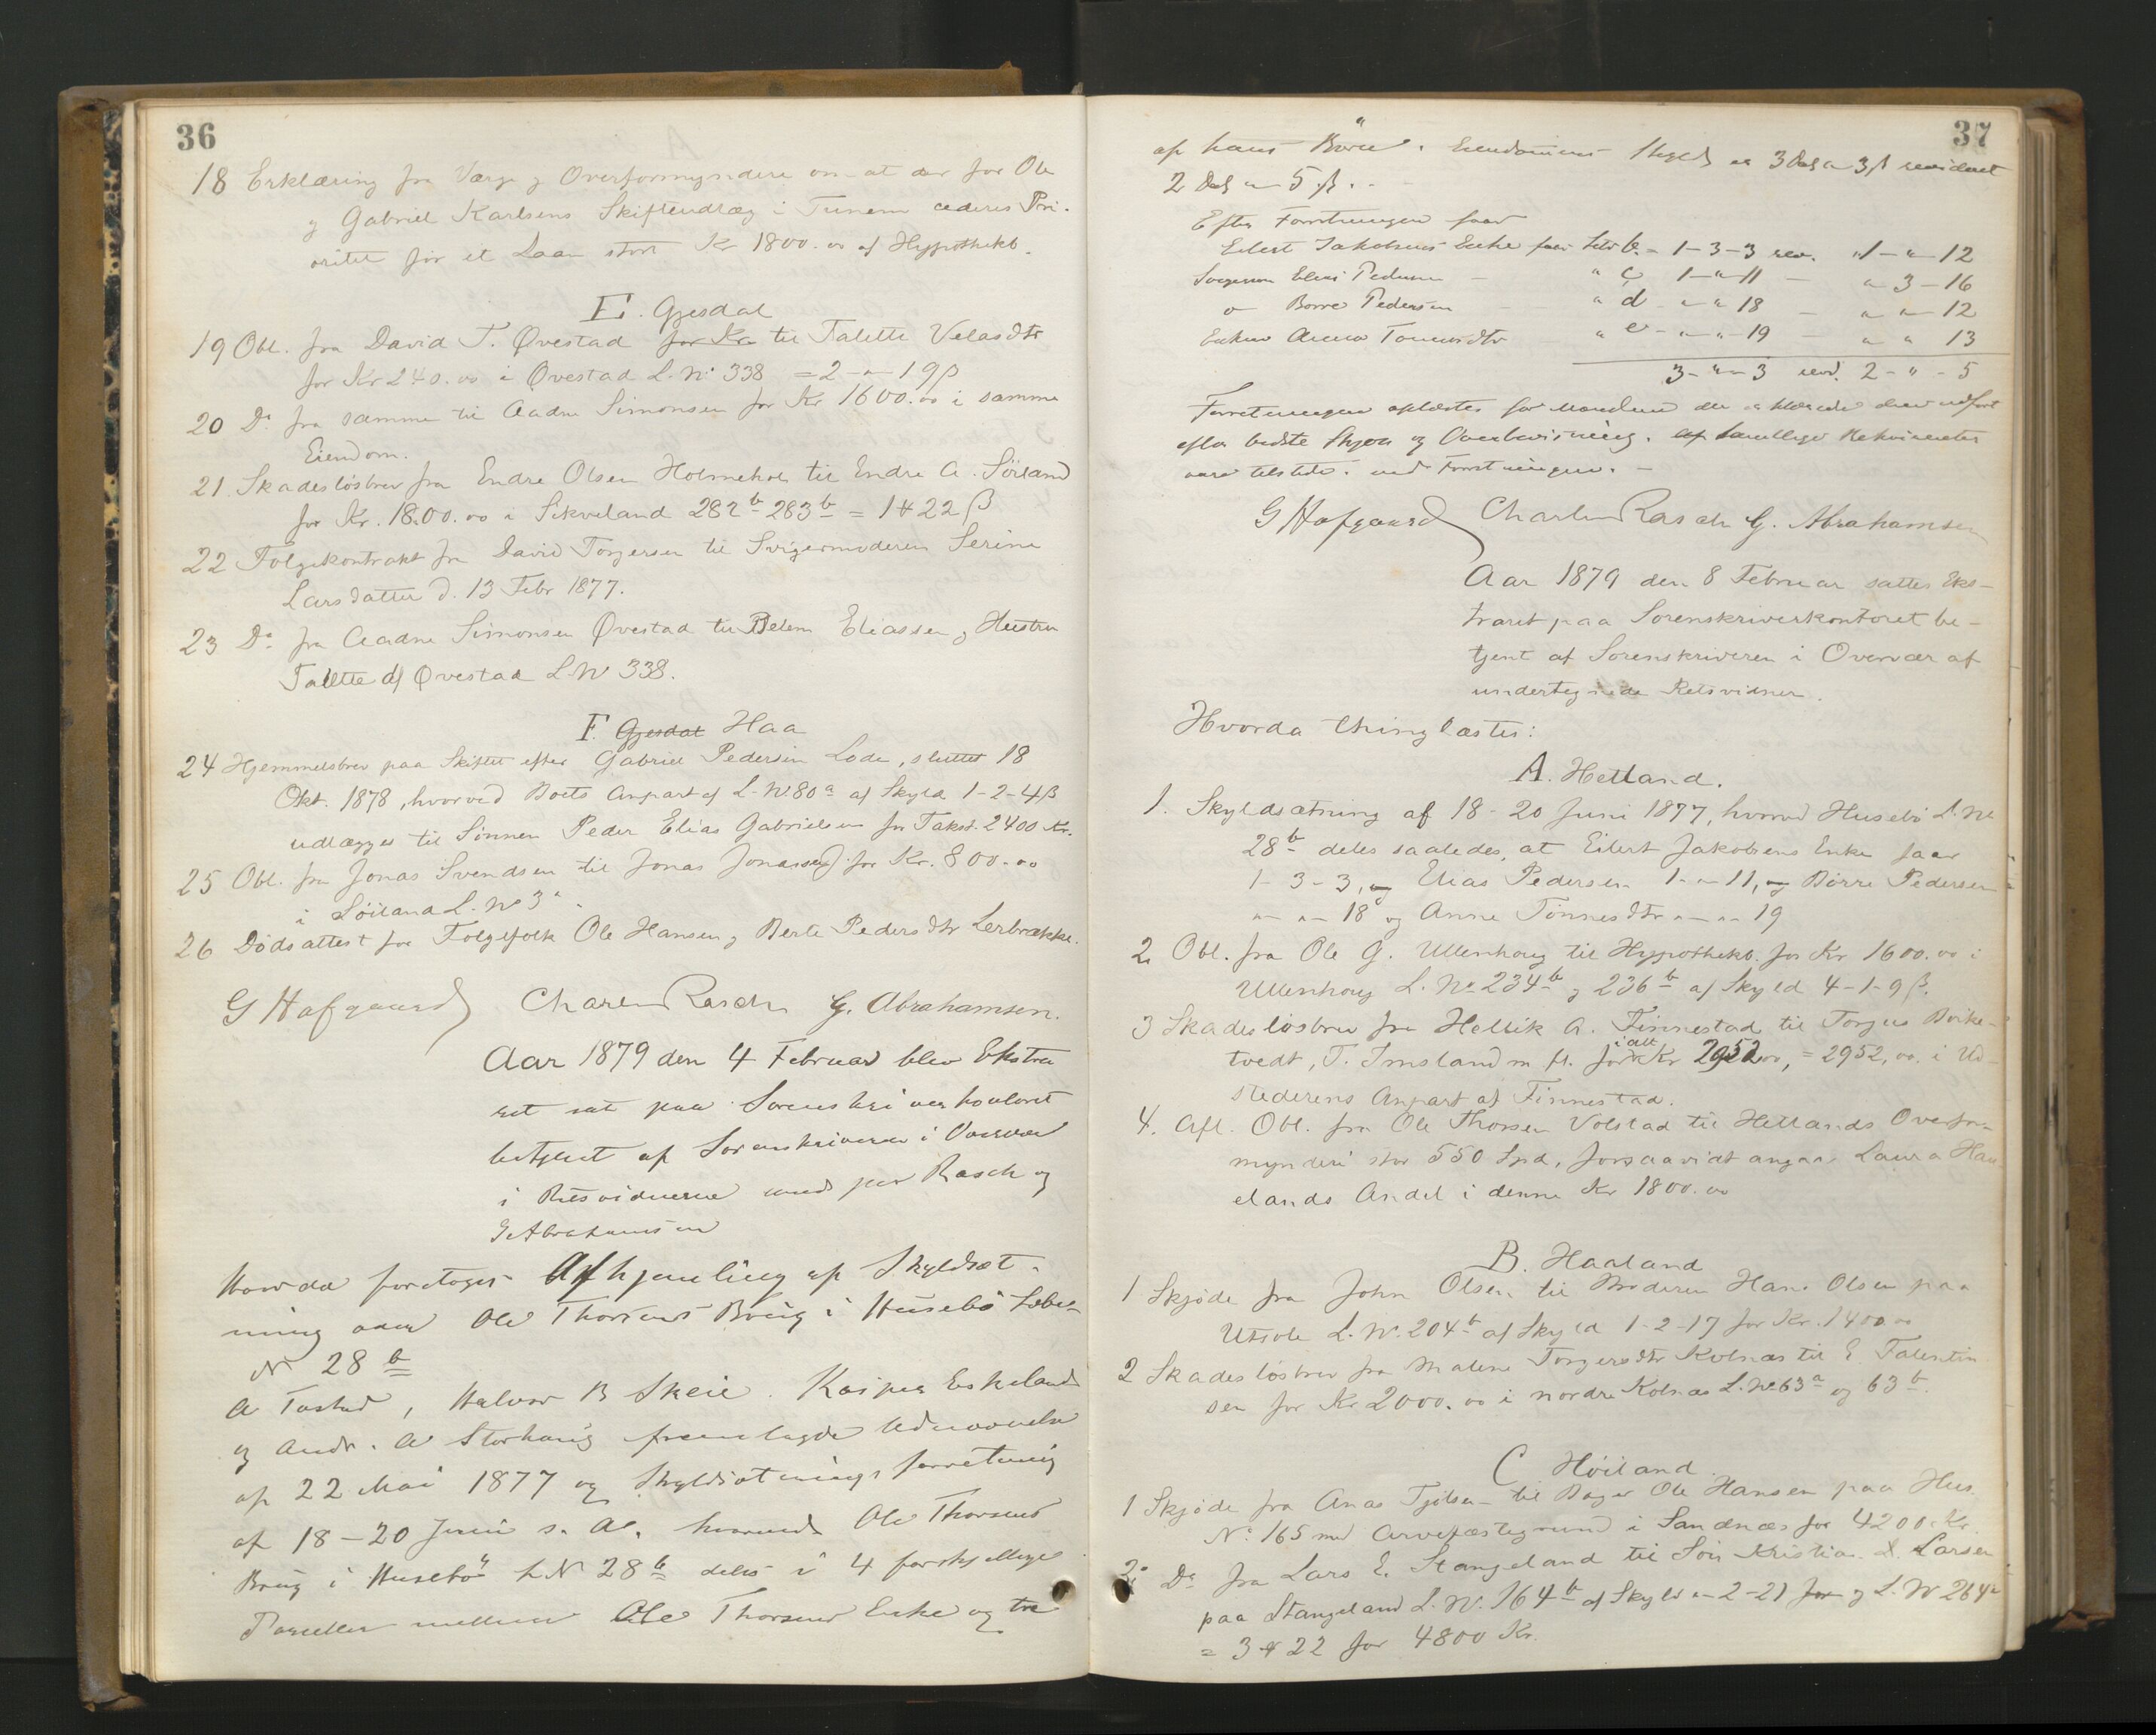 36
18 Erklæring fra Værge og Overformyndere om at der for Ole
og Gabriel Karlsens Skifteudlæg i Tunem cederes Pri-
oritet for et Laan stort Kr 1800.00 af Hypothekb.
E. Gjesdal
19 Obl. fra David T. Øvestad for Kr til Talette Velasdtr
for Kr 240.00 i Øvestad L.No 338 = 2 - " - 19 β
20 Do fra samme til Aadne Simonsen for Kr 1600.00 i samme
Eiendom.
21 Skadesløsbrev fra Endre Olsen Holmehol til Endre A. Sörland
for Kr. 1800.00 i Sikveland 282b 283b = 1 " 22 β
22 Folgekontrakt fra David Torgersen til Svigermoderen Serine
Larsdatter d. 13 Febr 1877.
23 Do fra Aadne Simonsen Øvestad til Pelem Eliassen og Hustru
Talette af Øvestad L.No 338.
F. Gjesdal Haa
24 Hjemmelsbrev paa Skiftet efter Gabriel Pedersen Lode, sluttet 18
Okt. 1878, hvorved Boets Anpart af L.No. 80a af Skyld 1-2-4 β
udlægges til Sönnen Peder Elias Gabrielsen for Takst. 2400 Kr.
25 Obl. fra Jonas Svendsen til Jonas Jonassen for Kr. 800.00
i Söiland L.No 3a.
26 Dödsattest for Folgefolk Ole Hansen og Berte Pedersdtr Lerbrække.
G Hafgaard Charles Rasch G. Abrahamsen.
Aar 1879 den 4 Februar blev Ekstra
ret sat paa Sorenskriverkontoret
betjent af Sorenskriveren i Overvær
i Retsvidnerne Rasch og
G Abrahamsen
Hvorda foretoges Afhjemling af Skyldsæt-
ning over Ole Thorsens Brug i Husebö Löbe
No 28b
A Tastad, Halvor B Skeie. Kasper Eskeland
og Andr. A Storhaug fremlagde Udnævnelse
af 22 Mai 1877 og Skyldsætningsforretning
af 18-20 Juni s. A., hvorved Ole Thorsens
Brug i Husebö LN 28b deles i 4 forskjellige
Parceller mellem Ole Thorsens Enke og tre
37
af hans Börn. Eiendommens Skyld er 3 Dal " 3 β revideret
2 Dal " 5 β.
Efter Forretningen faar
Eilert Jakobsens Enke faar Litr b. - 1-3-3 rev. "1-"-12
Svigersön Elias Pedersen - " c 1-"-11 - "-3-16
o Börre Pedersen - " d - "-"18 - "-"-12
Enken Anna Tonnesdtr " e - "-"-19 - " " 13
3-"-3 revd. 2-"-5
Forretningen oplæstes for Mændene der erklærede den udfört
efter bedste Skjön og Overbevisning. Samtlige Rekvirenter
vare tilstede ved Forretningen. -
G Hafgaard Charles Rasch G. Abrahamsen
Aar 1879 den 8 Februar sattes Eks-
traret paa Sorenskriverkontoret be-
tjent af Sorenskriveren i Overvær af
undertegnede Retsvidner.
Hvorda thinglæstes:
A. Hetland.
1. Skyldsætning af 18-20 Juni 1877, hvorved Husebö L.No
28b deles saaledes, at Eilert Jakobsens Enke faar
1-3-3, og Elias Pedersen 1-"-11, og Börre Pedersen
"-"-18 og Anne Tönnesdtr "-"-19
2. Obl. fra Ole G. Ullenhaug til Hypothekb. for Kr 1600.00 i
Ullenhaug L.No 234b og 236b af Skyld 4-1-9 β.
3 Skadesløsbrev fra Hellik A. Finnestad til Torgus Birke-
tvedt, T. Imsland m fl. for i alt Kr 2952.00, = 2952,00. i Ud-
stederens Anpart af Finnestad.
4. Afl. Obl. fra Ole Thorsen Volstad til Hetlands Overfor-
mynderi stor 550 Spd, forsaavidt angaar Laura Haa
elands Andel i denne Kr 1800.00
B. Haaland
1 Skjöde fra John Olsen til Broderen Hans Olsen paa
Utsole L.No. 204b af Skyld 1-2-17 for Kr. 1400.00
2 Skadesløsbrev fra Malene Torgersdtr Kolnæs til E. Falentin
sen for Kr 2000.00 i nordre Kolnæs L.No 63a og 63b.
C Höiland
1 Skjöde fra Anas Tjölsen til Bager Ole Hansen paa Hus
No 165 med Arvefæstegrund i Sandnæs for 4200 Kr
2 Do fra Lars E. Stangeland til Sön Kristian L. Larsen
paa Stangeland L.No. 164b af Skyld "-2-21 for og L.No 264a
= 3 " 22 for 4800 Kr.